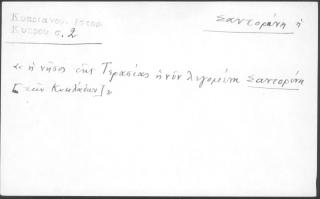 Κυπριανού, Ιστορ.
Κύπρου σ. 2
Σαντορίνη ἡ
« ἡ νῆσος τῆς Τηρασίας ἡ νῦν λεγομένη Σαντορίνη
[τῶν Κυκλάδων] »